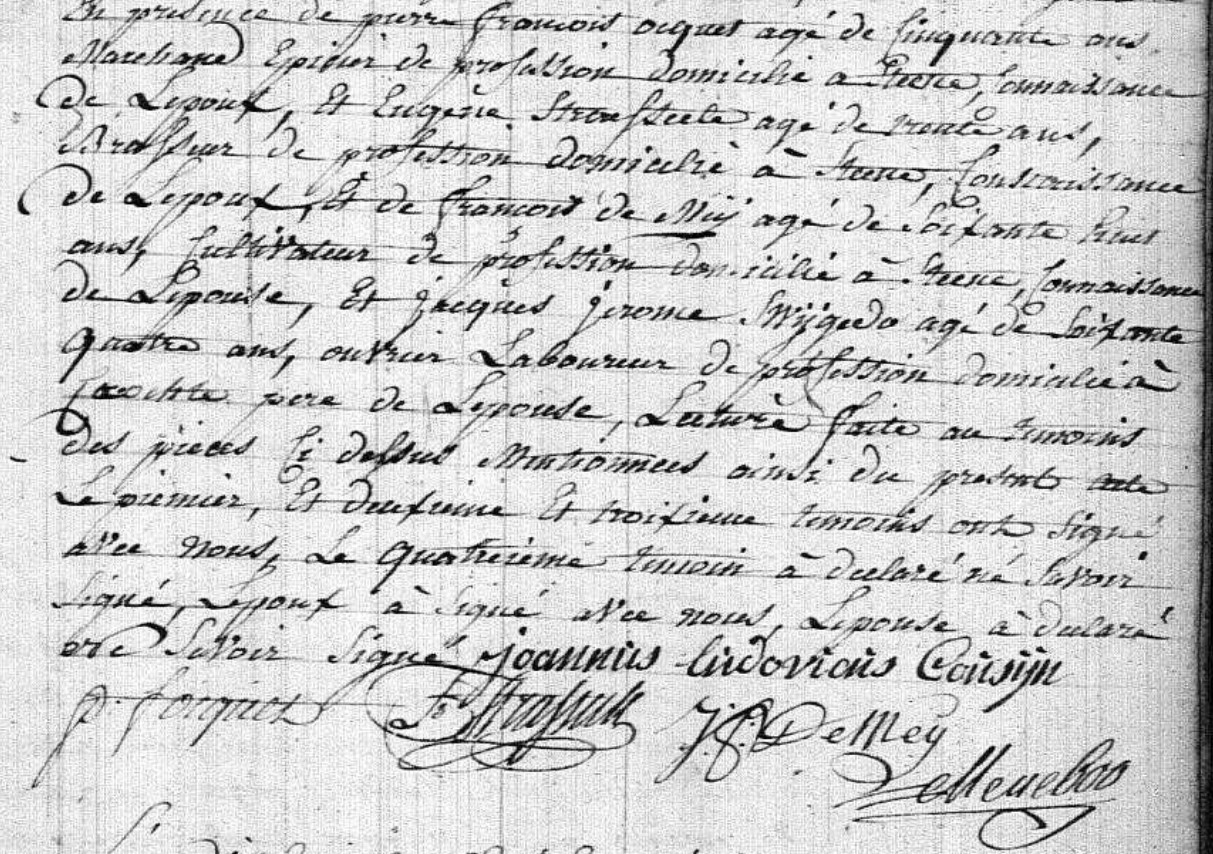 En presence de pierre francois ocquet agé de Cinquante ans
Marchand Epicier de profession domicilié à Steene, Connaissance
de Lepoux, Et Eugene Straesseele agé de trente ans,
Brasseur de profession domicilié à Steene, Connaissance
de Lepoux, Et de francois de Meij agé de Soixante huit
ans, Cultivateur de profession domicilié à Steene, Connaissance
de Lepouse, Et jacques jerome Swijgedo agé de Soixante
quatre ans, ouvrier Laboureur de profession domicilié à
pere de Lepouse, Lecture faite au temoins
des pieces Ci dessus Mentionnees ainsi du present acte
Le premier, Et deuxieme Et troixieme temoins ont Signé
avec nous, Le quatrieme temoin à declaré né Savoir
Signé, Lepoux à Signé avec nous, Lepouse à declaré
ne Savoir Signé joannus ludovicus Cousijn
p. f ocquet J. f. De Mey